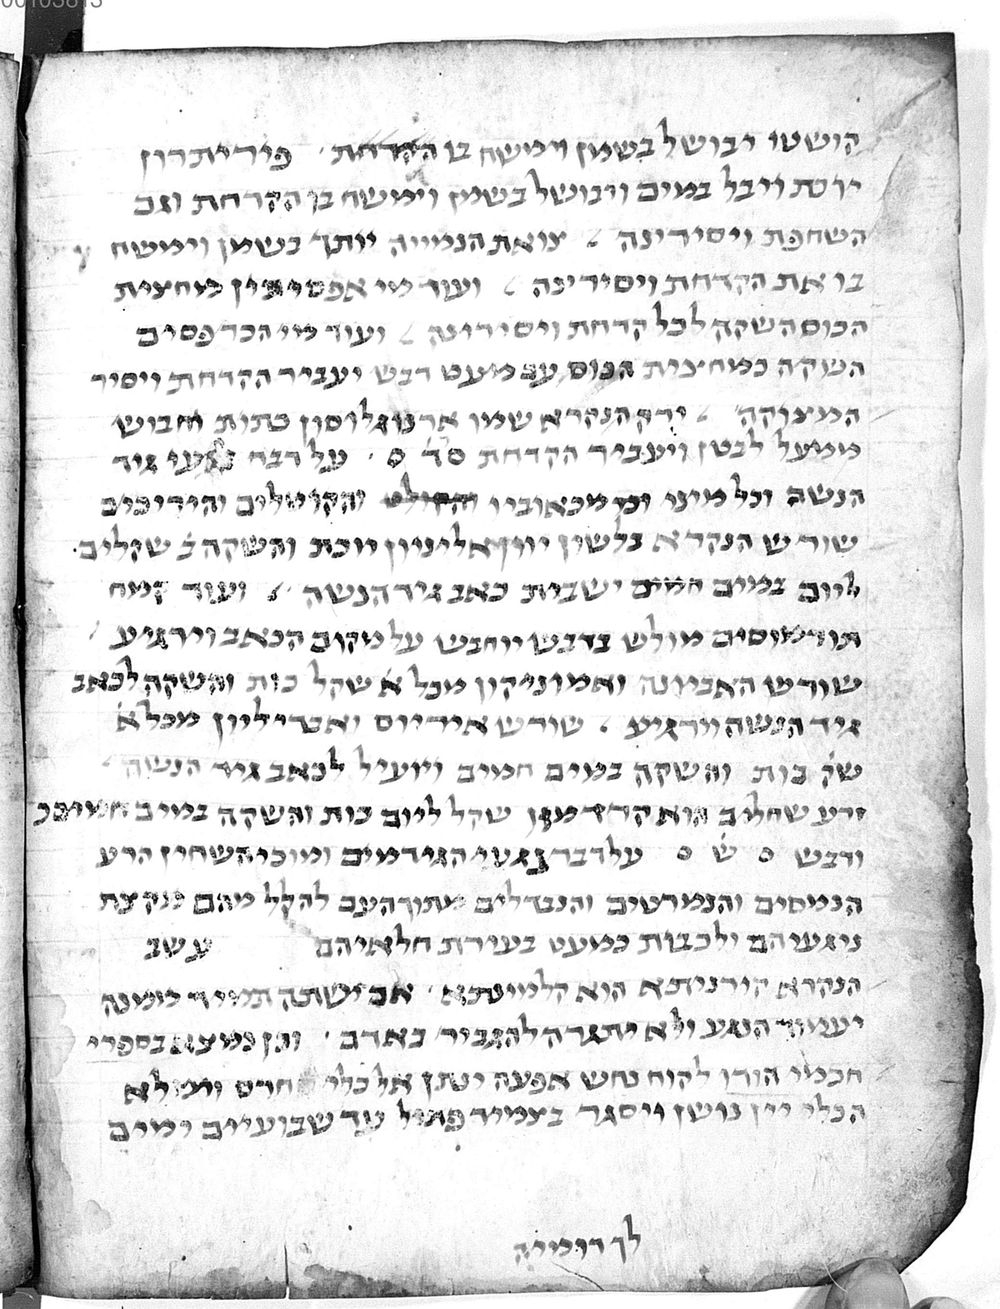 קושטו יבושל בשמן וימשח בו הקדחת ׳ פיריתרון
יוכת ויבל במים ויבושל בשמן וימשח בו הקדחת וגם
השחפת ויסירינה / צואת הנמייה יותך בשמן וימשח
בו את הקדחת ויסירינה / ועוד מי אפסינתין מחצית
הכוס השקה לכל קדחת ויסירינה / ועוד מי הכרפסים
השקה כמחצית הכוס עם מעט דבש יעביר הקדחת ויסיר
המצוקה / ירק הנקרא שמו ארנוגלוסון כתות וחבוש
ממעל לבטן ויעביר הקדחת סׄדׄ ס ׳ על דבר נגעי גיד
הנשה וכל מיני וכן מכאוביו והקוטלים והיריכים
שורש הנקרא בלשון יוון אליניון יוכת והשקה בׄ שקלים
ליום במים חמים ישבית כאב גיד הנשה / ועוד קמח
תורמוסים מולש בדבש יוחבש על מקום הכאב וירגיע /
שורש האביונה ואמוניקון מכל אׄ שקל כות והשקה לכאב
גיד הנשה וירגיע / שורש איריוס ואטריליון מכל אׄ
שקׄ כות והשקה במים חמים ויועיל לכאב גיד הנשה
זרע שחלים הוא קרדמון שקל ליום כות והשקה במים חמים
ודבש ס שׄ ס על דבר נגעי הגידמים ומוכי השחין הרע
הנמסים והנמרטים והנבדלים מתוך העם להקל מהם מקצת
ניגעיהם ולכבות כמעט בעירת חלאיהם עשב
הנקרא קורניתא הוא קלמינתא ׳ אם ישתה תמיד ממנה
יעמוד הנגע ולא יתגרה להגביר באדם ׳ וכן נמצא בספרי
חכמי הודו לקוח נחש אפעה ינתן אל כלי חרס וימלא
הכלי יין נושן ויסגר בצמיד פתיל עד שבועיים ימים
לך דומייה